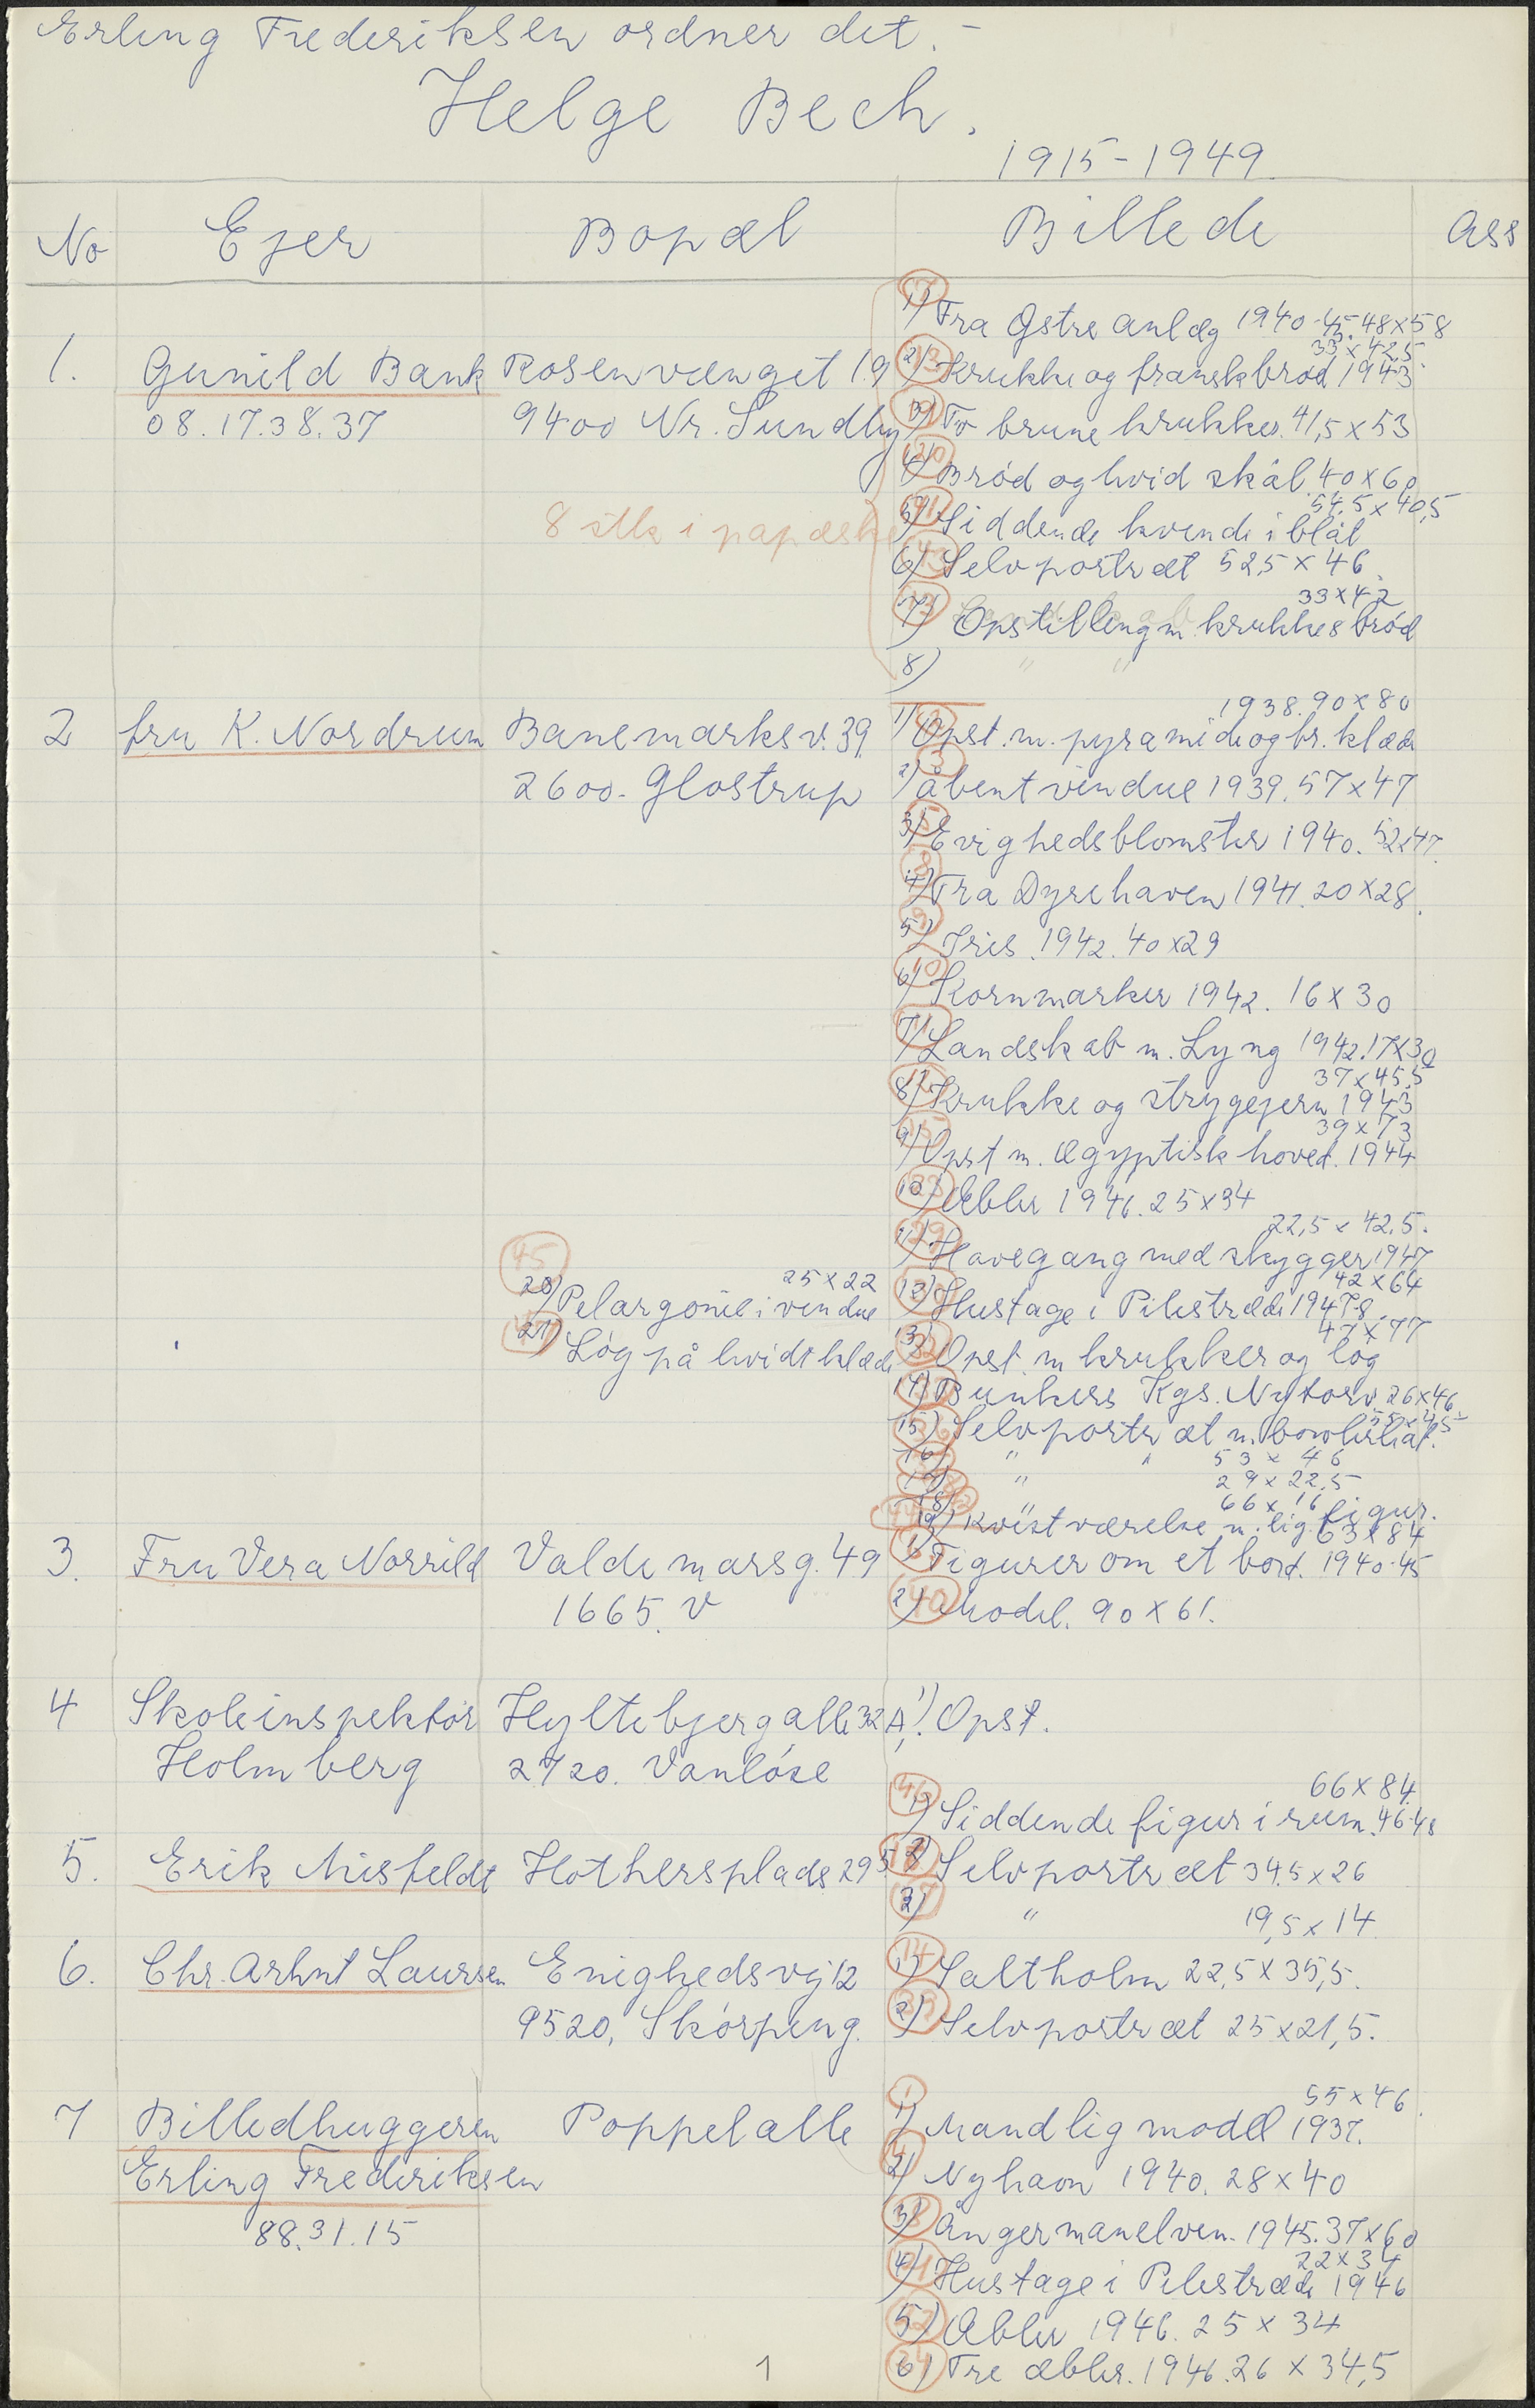 Erling Frederiksen ordner det. -
Helge Bech.
1915-1949.
No Ejer Bopæl Billede Ass
1. Gunild Bank Rosenvænget 19
08.17.38.37 9400 Nr. Sundby
8 stk i papæske
1) Fra Østre anlæg 1940-45. 48x58
33x42,5
2) Krukke og franskbrød 1943
3) To brune krukker. 41,5x53
4) Brød og hvid skål. 40x60
54,5x40,5
5) Siddende kvinde i blåt
6) Selvportræt 52,5x46
33x42
7) Opstilling m. krukke & brød
8) " "
2 fru K. Nordrum Banemarksv. 39.
2600. Glostrup
1938. 90x80
1) Opst. m. pyramide og br. klæde
2) åbent vindue 1939. 57x47
3) Evighedsblomster 1940. 52x47.
4) Fra Dyrehaven 1941. 20x28.
5) Iris. 1942. 40x29
6) Kornmarker 1942. 16x30
7) Landskab m. Lyng 1942. 17x30
37x45,5
8) Krukke og strygejern 1943
39x73
9) Opst m. ægyptisk hoved. 1944
10) Æbler 1946. 25x34
22,5x42,5.
11) Havegang med skygger 1947
42x64
12) Hustage i Pilestræde 1947-8
47x77
13) Opst. m krukker og løg
14) Bunkers Kgs. Nytorv 26x46
55x45
15) Selvportræt m. bowlerhat.
16) " " 53x46
17) " 29x22,5
18) " 66x16
19) Kvistværelse m. lig. figur.
45
20) Pelargonie i vindue 25x22
21) Løg på hvidt klæde
3. Fru Vera Norrild Valdemarsg. 49
1665. V
63x84
1) Figurer om et bord. 1940-45
2) Model. 90x61.
4 Skoleinspektør Hyltebjergalle 32 A, 1) Opst.
Holmberg 2720. Vanløse
5. Erik Misfeldt Hothersplads 29 5
46
66x84
1) Siddende figur i rum. 46-48
2) Selvportræt 34,5x26
3) " 19,5x14
6. Chr. Arhnt Laursen Enighedsvej 12
9520, Skørping.
14
1) Saltholm 22,5x35,5.
2) Selvportræt 25x21,5.
7 Billedhuggeren Poppelalle
Erling Frederiksen
88.31.15
1
55x46
1) Mandlig model 1937.
2) Nyhavn 1940. 28x40
3) Ångermanelven. 1945. 37x60
22x34
4) Hustage i Pilestræde 1946
5) Æbler 1946. 25x34
6) Tre æbler. 1946. 26x34,5
1